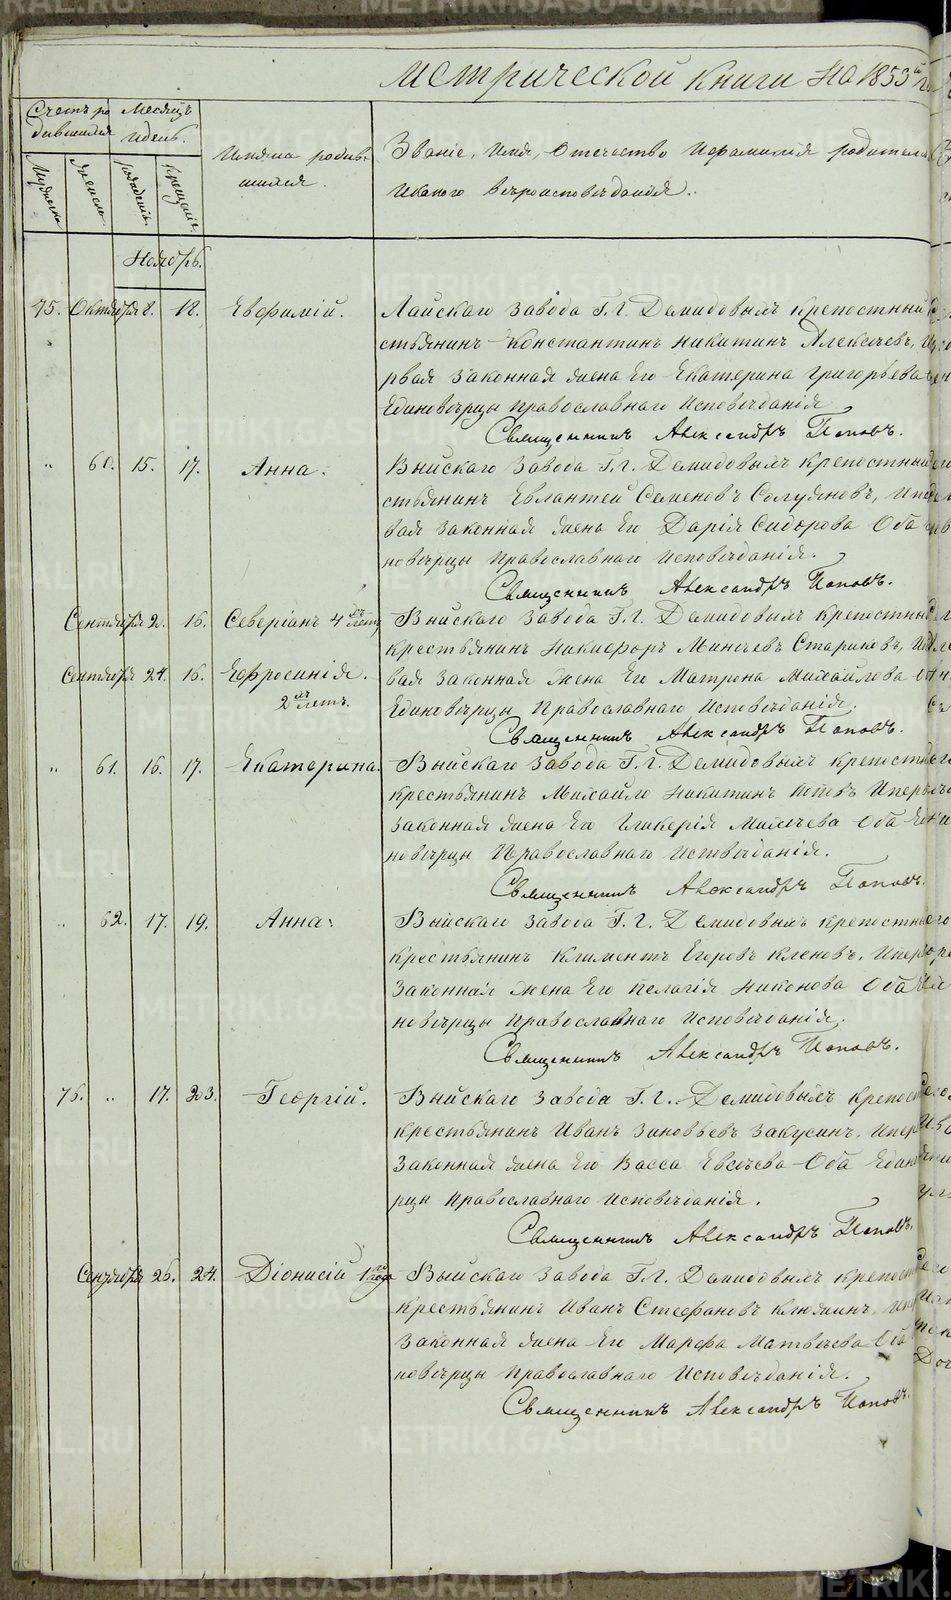 Метрической книги на 1853й го
Счетъ ро Месяцъ
дившихся и день.
Имяна родив-
шихся.
Званіе, имя, отечество и фамилія родителей
и какого вероисповеданія.
Мужеска Женска Рожденія. Крещенія.
Ноябрь.
75. Октября 8. 18. Евфимій. Лайскаго завода Г.Г. Демидовымъ крепостный
стьянинъ Константинъ Никитинъ Алексеевъ, и
рвая законная жена его Екатерина Григорьева
Единоверцы православнаго исповеданія
Священникъ Александръ Поповъ.
" 60. 15. 17. Анна. Выйскаго завода Г.Г. Демидовымъ крепостный
стьянинъ Евлантей Семеновъ Солуяновъ, и пе
вая законная жена его Дарія Сидорова оба
новерцы православнаго исповеданія.
Священникъ Александръ Поповъ.
Сентября 2. 16. Северіанъ 4 летъ Выйскаго завода Г.Г. Демидовымъ крепостный
крестьянинъ Никифоръ Минеевъ Стариковъ, и
Сентября 24. 16. Ефросинія. вая законная жена его Матрона Михайлова об
2 летъ. Единоверцы православнаго исповеданія.
Священникъ Александръ Поповъ.
" 61. 16. 17. Екатерина. Выйскаго завода Г.Г. Демидовымъ крепостн
крестьянинъ Михайло Никитинъ Котовъ и перв
законная жена его Гликерія Михеева оба Еди
новерцы православнаго исповеданія.
Священникъ Александръ Поповъ.
" 62. 17. 19. Анна. Выйскаго завода Г.Г. Демидовымъ крепостн
крестьянинъ Климентъ Егоровъ Кленовъ, и перв
законная жена его Пелагія Никонова оба
новерцы православнаго исповеданія.
Священникъ Александръ Поповъ.
76. " 17. 23. Георгій. Выйскаго завода Г.Г. Демидовымъ крепост
крестьянинъ Иванъ Зиновьевъ Закусинъ, и пер
законная жена его Васса Евсеева оба Едино
рцы православнаго исповеданія.
Священникъ Александръ Поповъ.
Сентября 26. 24. Діонисій 1 года Выйскаго завода Г.Г. Демидовымъ крепост
крестьянинъ Иванъ Стефановъ Клюжинъ, и
законная жена его Марфа Матвеева Об
новерцы православнаго исповеданія.
Священникъ Александръ Поповъ.
METRIKI.GASO-URAL.RU